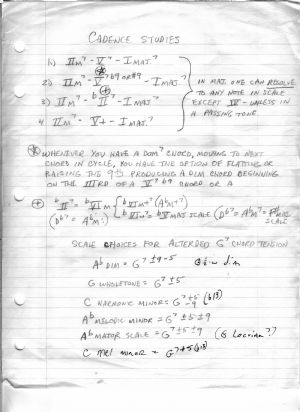 CADENCE STUDIES
1) IIm7 - V7 - I MAJ.7
2) IIm7 - V7 b9 or #9 - I MAJ.7
3) IIm7 - bII7 - I MAJ.7
4 IIm7 - V+ - I MAJ.7
IN MAJ. ONE CAN RESOLVE
TO ANY NOTE IN SCALE
EXCEPT IV - UNLESS IN
A PASSING TONE
WHENEVER YOU HAVE A DOM7 CHORD, MOVING TO NEXT
CHORD IN CYCLE, YOU HAVE THE OPTION OF FLATTING OR
RAISING THE 9th PRODUCING A DIM CHORD BEGINNING
ON THE IIIRD OF A V7 b9 CHORD OR A
bII7 = bVIm
(Db7 = Abm)
SCALE
SCALE CHOICES FOR ALTERDED G7 CHORD TENSION
Ab DIM = G7
dim
G WHOLETONE = G7 ±5
C HARMONIC MINOR = G7 (b13)
Ab MELODIC MINOR = G7 ±5 ±9
Ab MAJOR SCALE = G7 ±5 ±9 (G Locrian?)
C Mel minor = G7